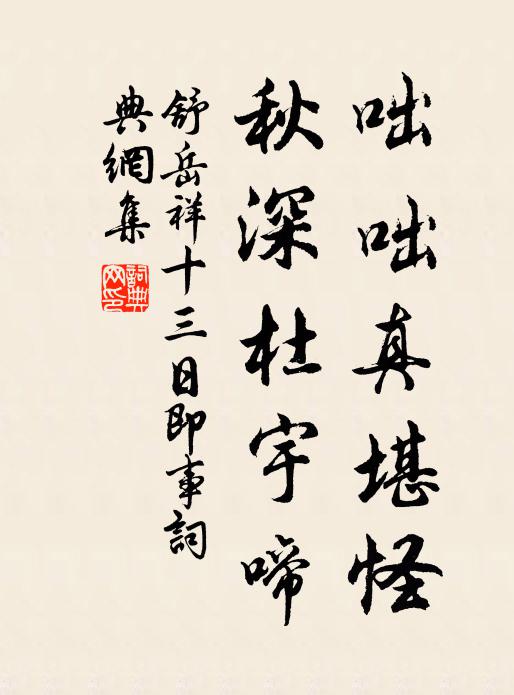 咄咄真堪怪
秋深杜宇啼
舒岳祥十三日即事詞
典網集
詞典網印